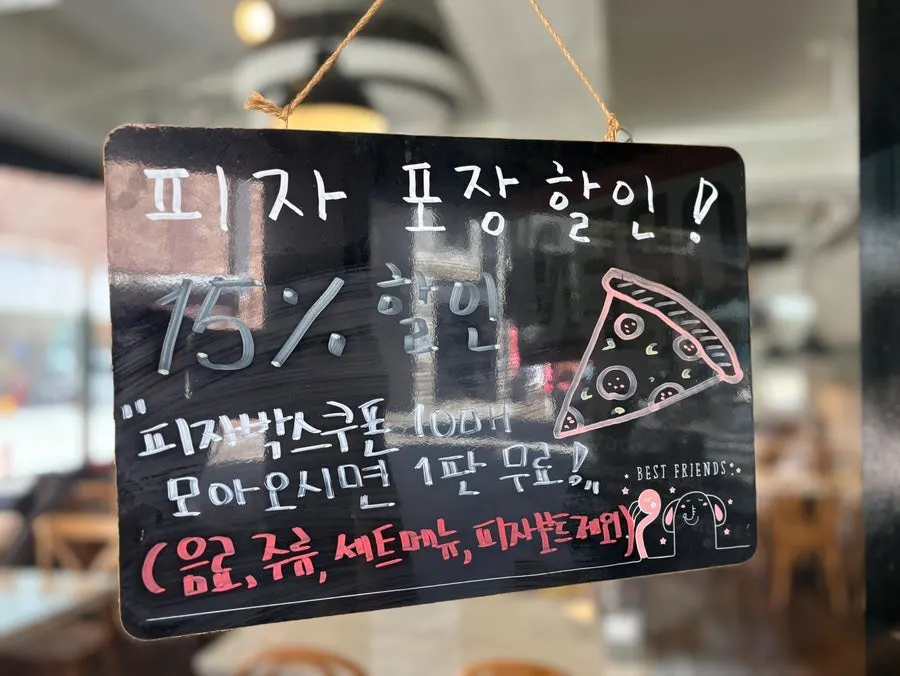 피자 포장 할인!
15% 할인
"피자박스쿠폰 10매
모아오시면 1판 무료!"
BEST FRIENDS
(음료, 주류, 세트메뉴, 피자보트제외)